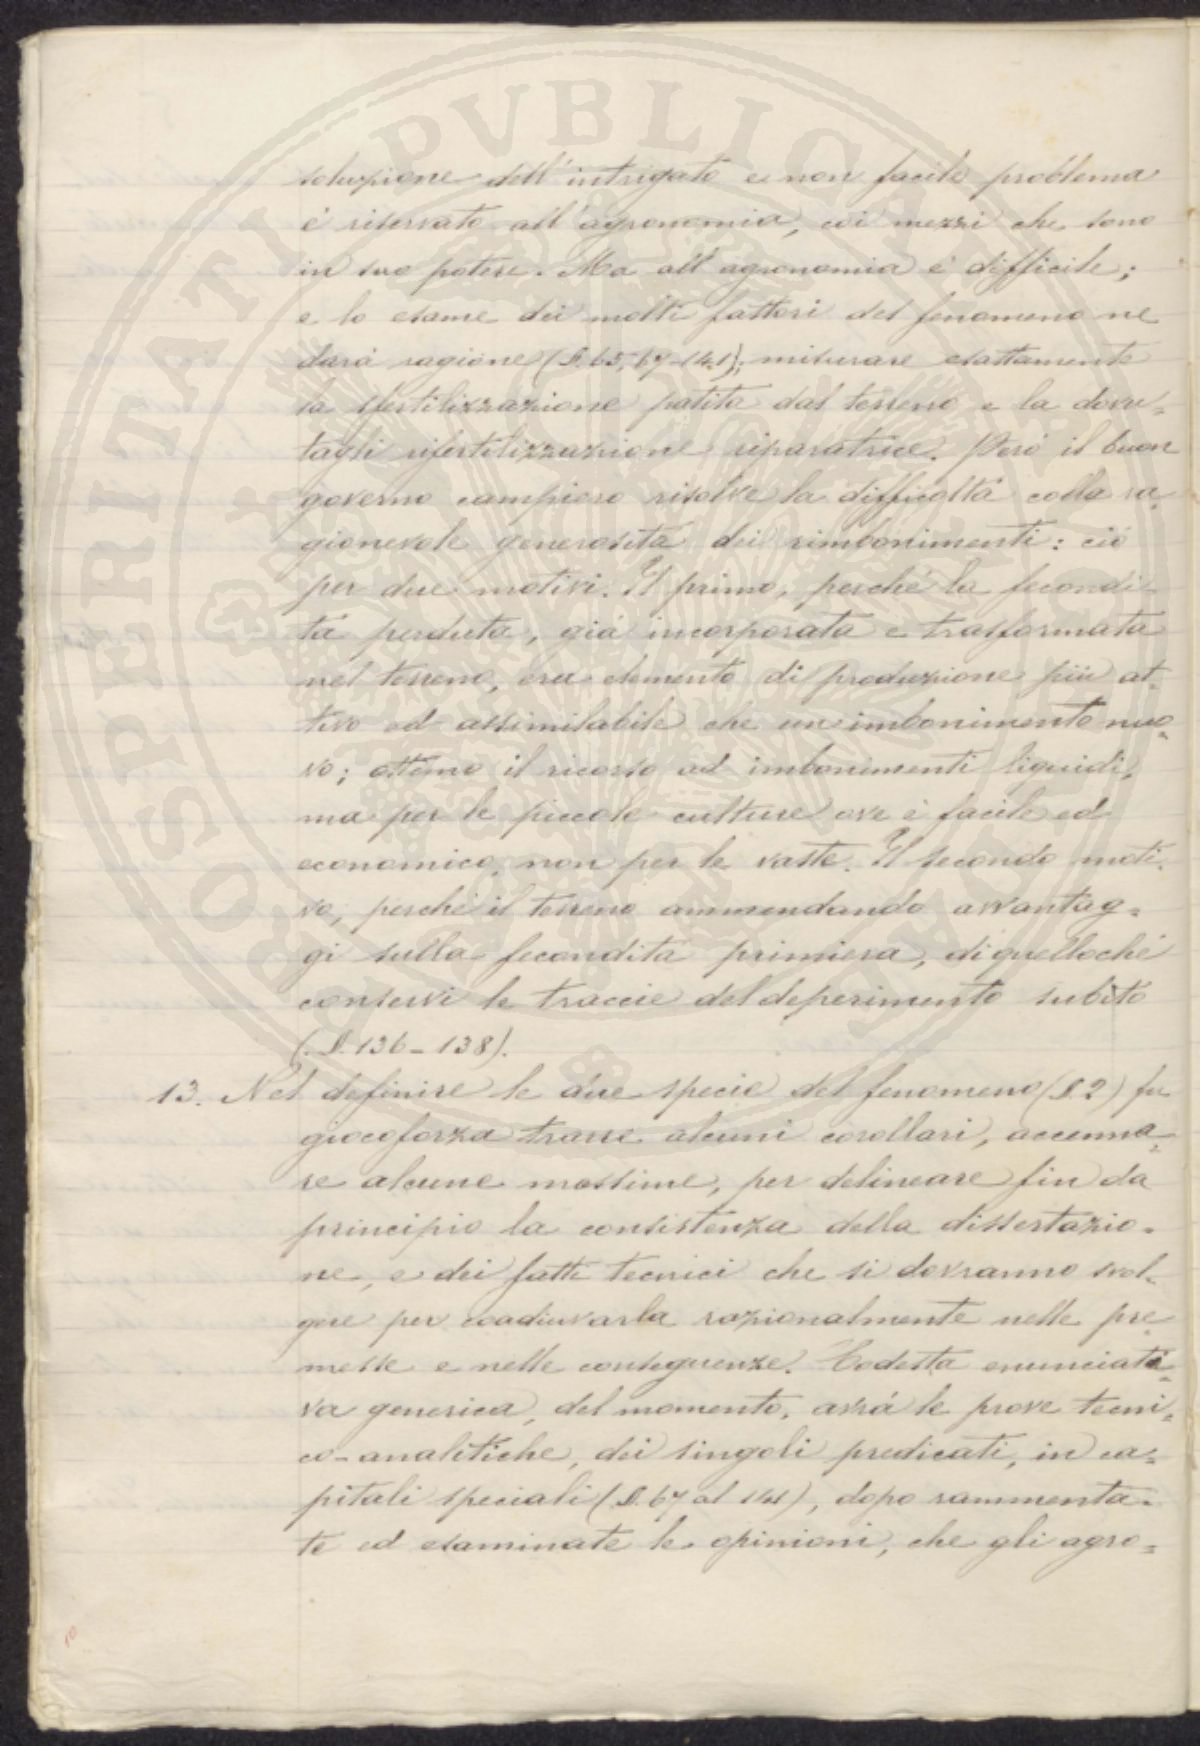 PROSPERITATI PVBLICAE
soluzione dell'intrigato e non facile problema
è riservato all'agronomia, coi mezzi che sono
in suo potere. Ma all'agronomia è difficile;
e lo esame dei molti fattori del fenomeno ne
darà ragione (§. 65, 67-141); misurare esattamente
la sfertilizzazione patita dal terreno e la dovu=
tagli rifertilizzazione riparatrice. Però il buon
governo campiero risolve la difficoltà colla ra=
gionevole generosità dei rimbonimenti: ciò
per due motivi. Il primo, perchè la fecondi=
tà perduta, già incorporata e trasformata
nel terreno, era elemento di produzione più at=
tivo ed assimilabile che un imbonimento nuo=
vo; ottimo il ricorso ad imbonimenti liquidi,
ma per le piccole culture ove è facile ed
economico, non per le vaste. Il secondo moti=
vo, perchè il terreno ammendando avvantag=
gi sulla fecondità primiera, di quellochè
conservi le traccie del deperimento subìto
(§. 136-138).
13. Nel definire le due specie del fenomeno (§. 2) fu
giocoforza trarre alcuni corollari, accenna=
re alcune massime, per delineare fin da
principio la consistenza della dissertazio=
ne, e dei fatti tecnici che si dovranno svol=
gere per coadiuvarla razionalmente nelle pre
messe e nelle conseguenze. Codesta enunciati=
va generica, del momento, avrà le prove tecni=
co-analitiche, dei singoli predicati, in ca=
pitali speciali (§. 67 al 141), dopo rammenta=
te ed esaminate le opinioni, che gli agro=